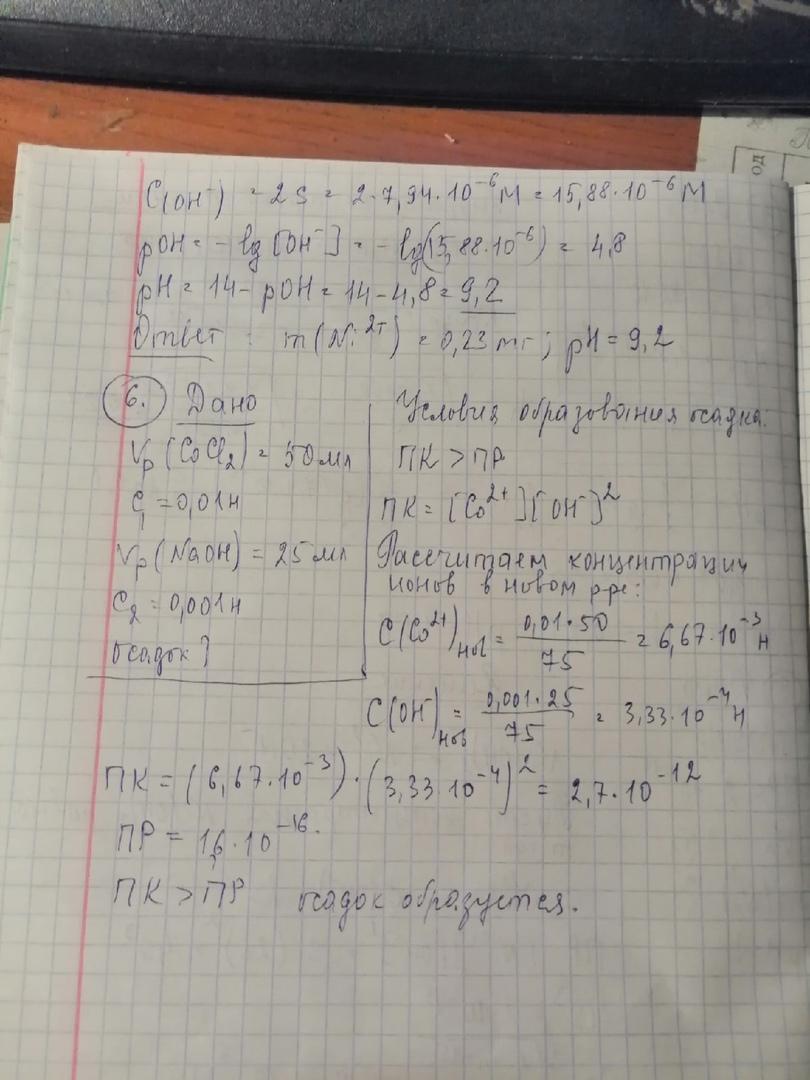 C(OH⁻) = 2S = 2·7,94·10⁻⁶ М = 15,88·10⁻⁶ М
pOH = -lg[OH⁻] = -lg(15,88·10⁻⁶) = 4,8
pH = 14 - pOH = 14 - 4,8 = 9,2
Ответ: m(Ni²⁺) = 0,23 мг; pH = 9,2
6. Дано
Vр(CoCl₂) = 50 мл
C₁ = 0,01 н
Vр(NaOH) = 25 мл
C₂ = 0,001 н
осадок?
Условия образования осадка:
ПК > ПР
ПК = [Co²⁺][OH⁻]²
Рассчитаем концентрации
ионов в новом р-ре:
C(Co²⁺)нов = 0,01·50/75 = 6,67·10⁻³ н
C(OH⁻)нов = 0,001·25/75 = 3,33·10⁻⁴ н
ПК = (6,67·10⁻³)·(3,33·10⁻⁴)² = 2,7·10⁻¹²
ПР = 1,6·10⁻¹⁶.
ПК > ПР осадок образуется.
од